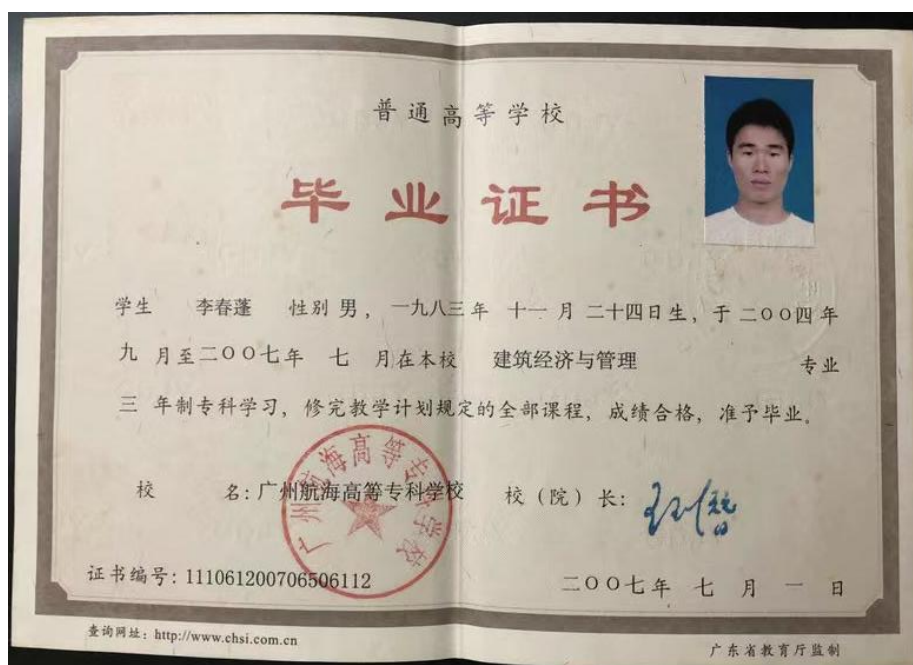 普通高等学校
毕业证书
学生 李春蓬 性别 男，一九八三年 十一 月 二十四日生，于 二〇〇四 年
九 月至二〇〇七年 七 月在本校 建筑经济与管理 专业
三 年制专科学习，修完教学计划规定的全部课程，成绩合格，准予毕业。
校 名：广州航海高等专科学校 校（院）长：
广州航海高等专科学校
证书编号：111061200706506112 二〇〇七年 七 月 一 日
查询网址：http://www.chsi.com.cn 广东省教育厅监制